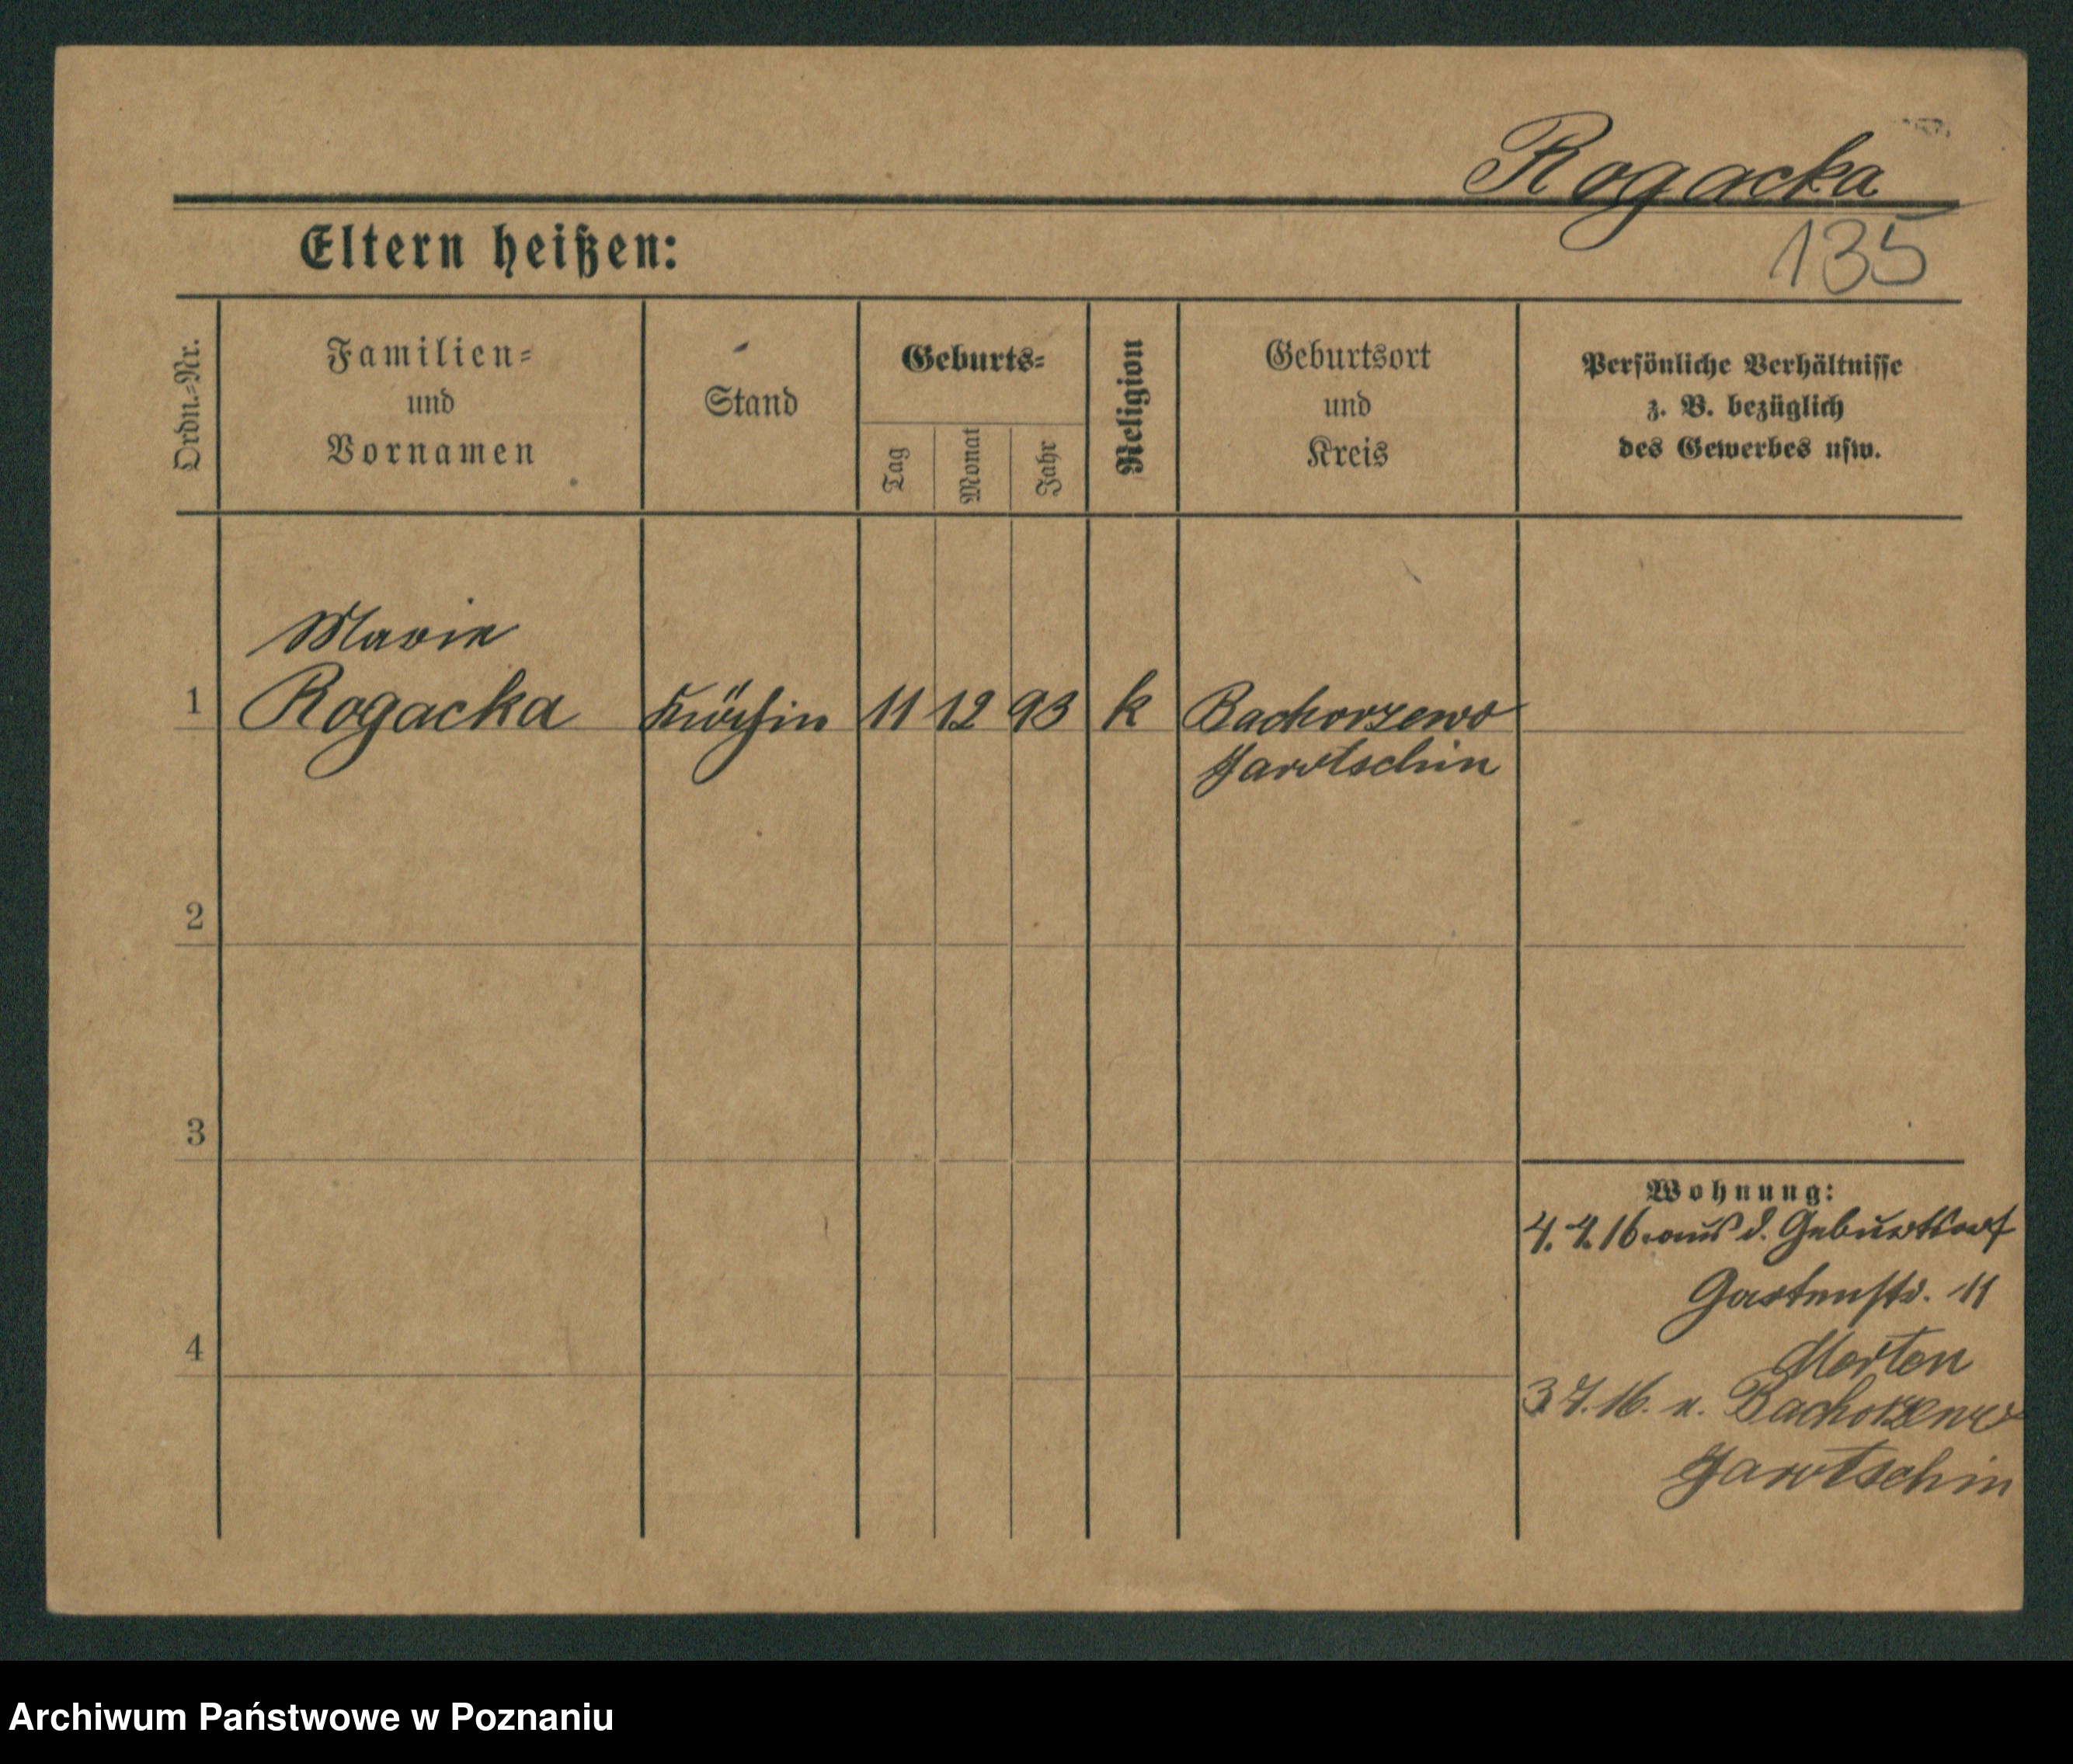 Rogacka
135
Eltern heißen:
Ordn.-Nr.
Familien-
und
Vornamen
Stand
Geburts-
Tag
Monat
Jahr
Religion
Geburtsort
und
Kreis
Persönliche Verhältnisse
z. B. bezüglich
des Gewerbes usw.
Marie
1 Rogacka Köchin 11 12 93 k Bachorzewo
Jarotschin
2
3
Wohnung:
4. 4. 16. aus d. Geburtsort
Gartenstr. 11
4
3 7. 16. n. Bachorzewo
Jarotschin
Archiwum Państwowe w Poznaniu